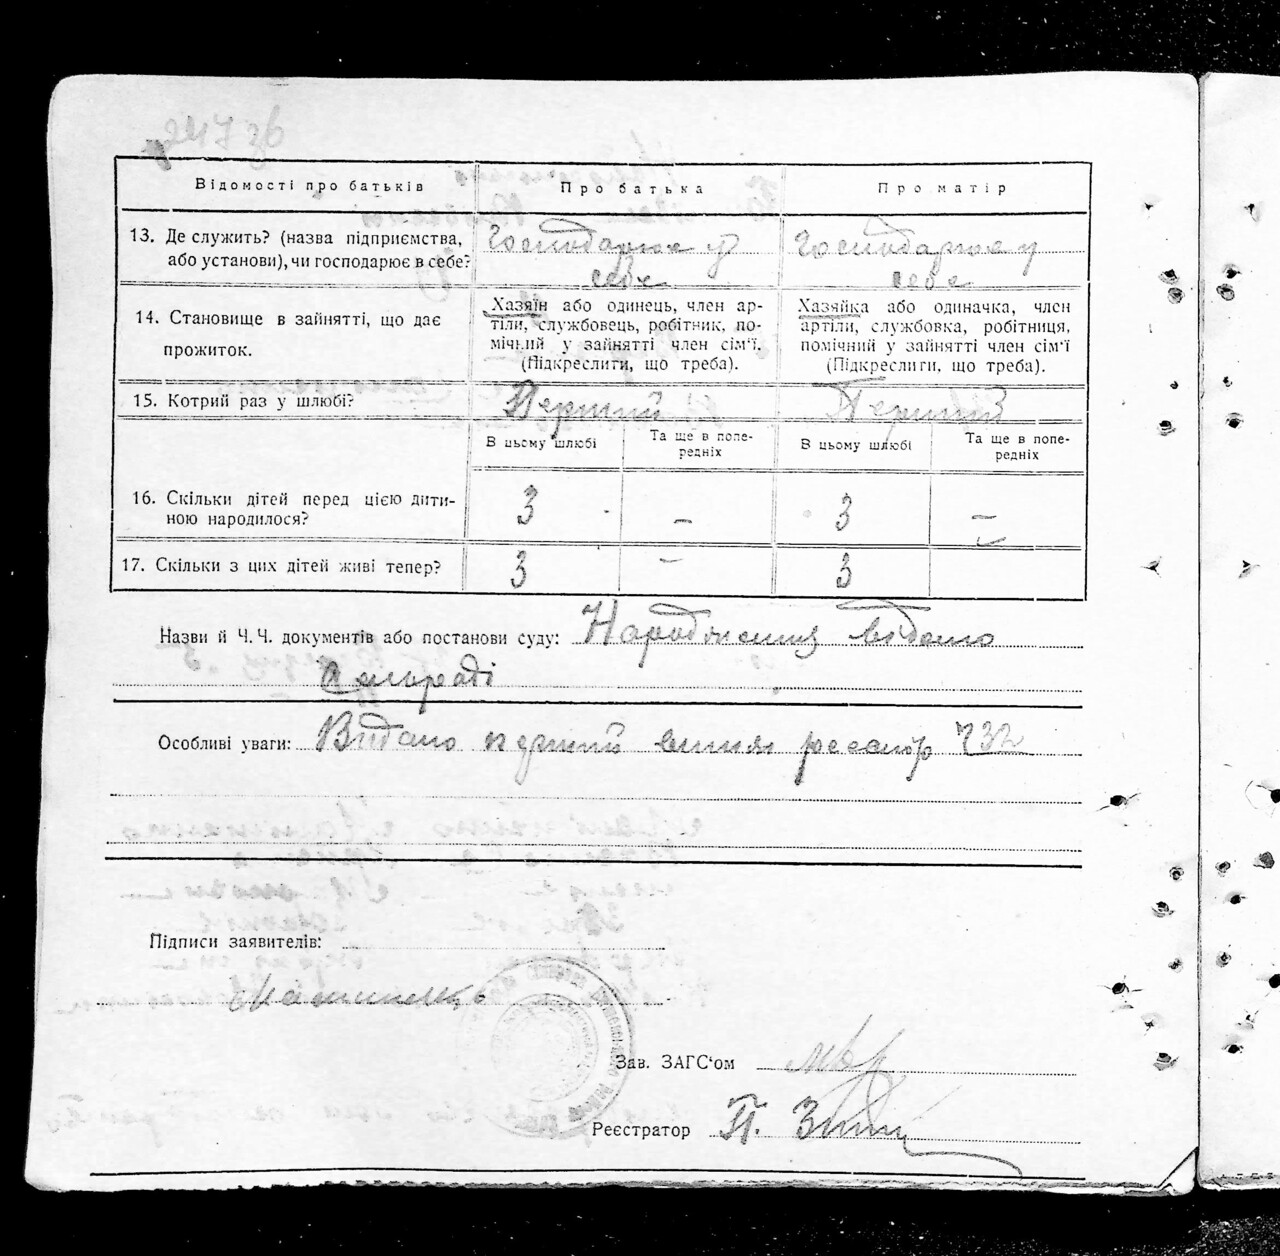 2473б
Відомості про батьків
Про батька
Про матір
13. Де служить? (назва підприємства,
або установи), чи господарює в себе?
Господарює у
себе
Господарює у
себе
14. Становище в зайнятті, що дає
прожиток.
Хазяїн або одинець, член ар-
тіли, службовець, робітник, по-
мічний у зайнятті член сім'ї.
(Підкреслити, що треба).
Хазяйка або одиначка, член
артіли, службовка, робітниця,
помічний у зайнятті член сім'ї
(Підкреслити, що треба).
15. Котрий раз у шлюбі?
Перший
Перший
В цьому шлюбі
Та ще в попе-
редніх
В цьому шлюбі
Та ще в попе-
редніх
16. Скільки дітей перед цією дити-
ною народилося?
3 – 3 –
17. Скільки з цих дітей живі тепер?
3 – 3
Назви й Ч.Ч. документів або постанови суду: Народження відомо
Сільраді
Особливі уваги: Видано перший 732
Підписи заявителів:
Зав. ЗАГС'ом
Реєстратор П.